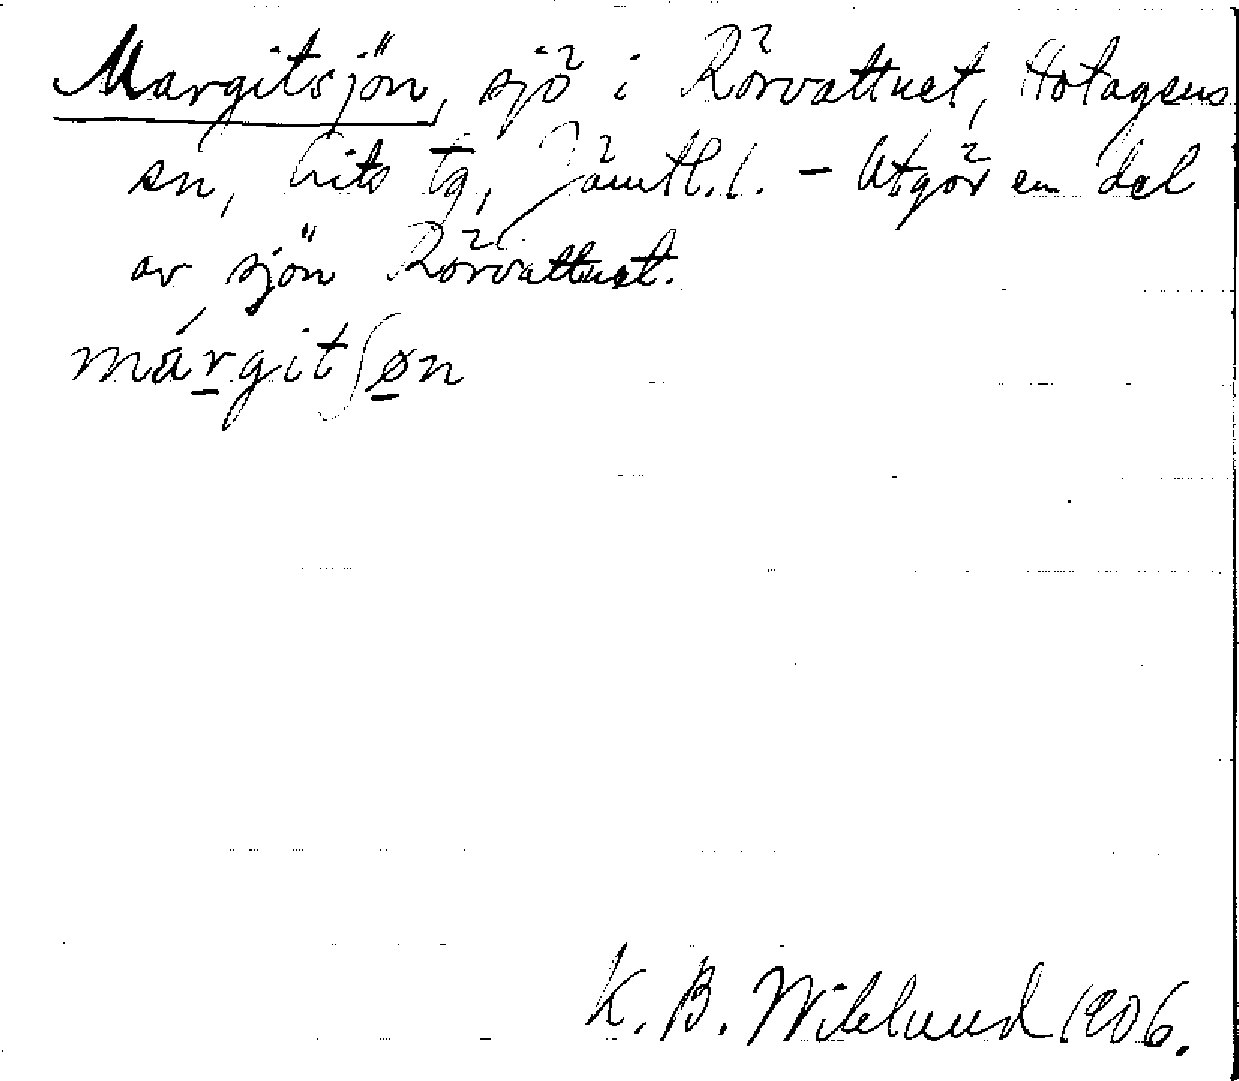 Margitsjön, sjö i Rörvattnet, Hotagens
sn, Lits tg, Jämtl.l. - Utgör en del
av sjön Rörvattnet.
márgitʃøn
K. B. Wiklund 1906.